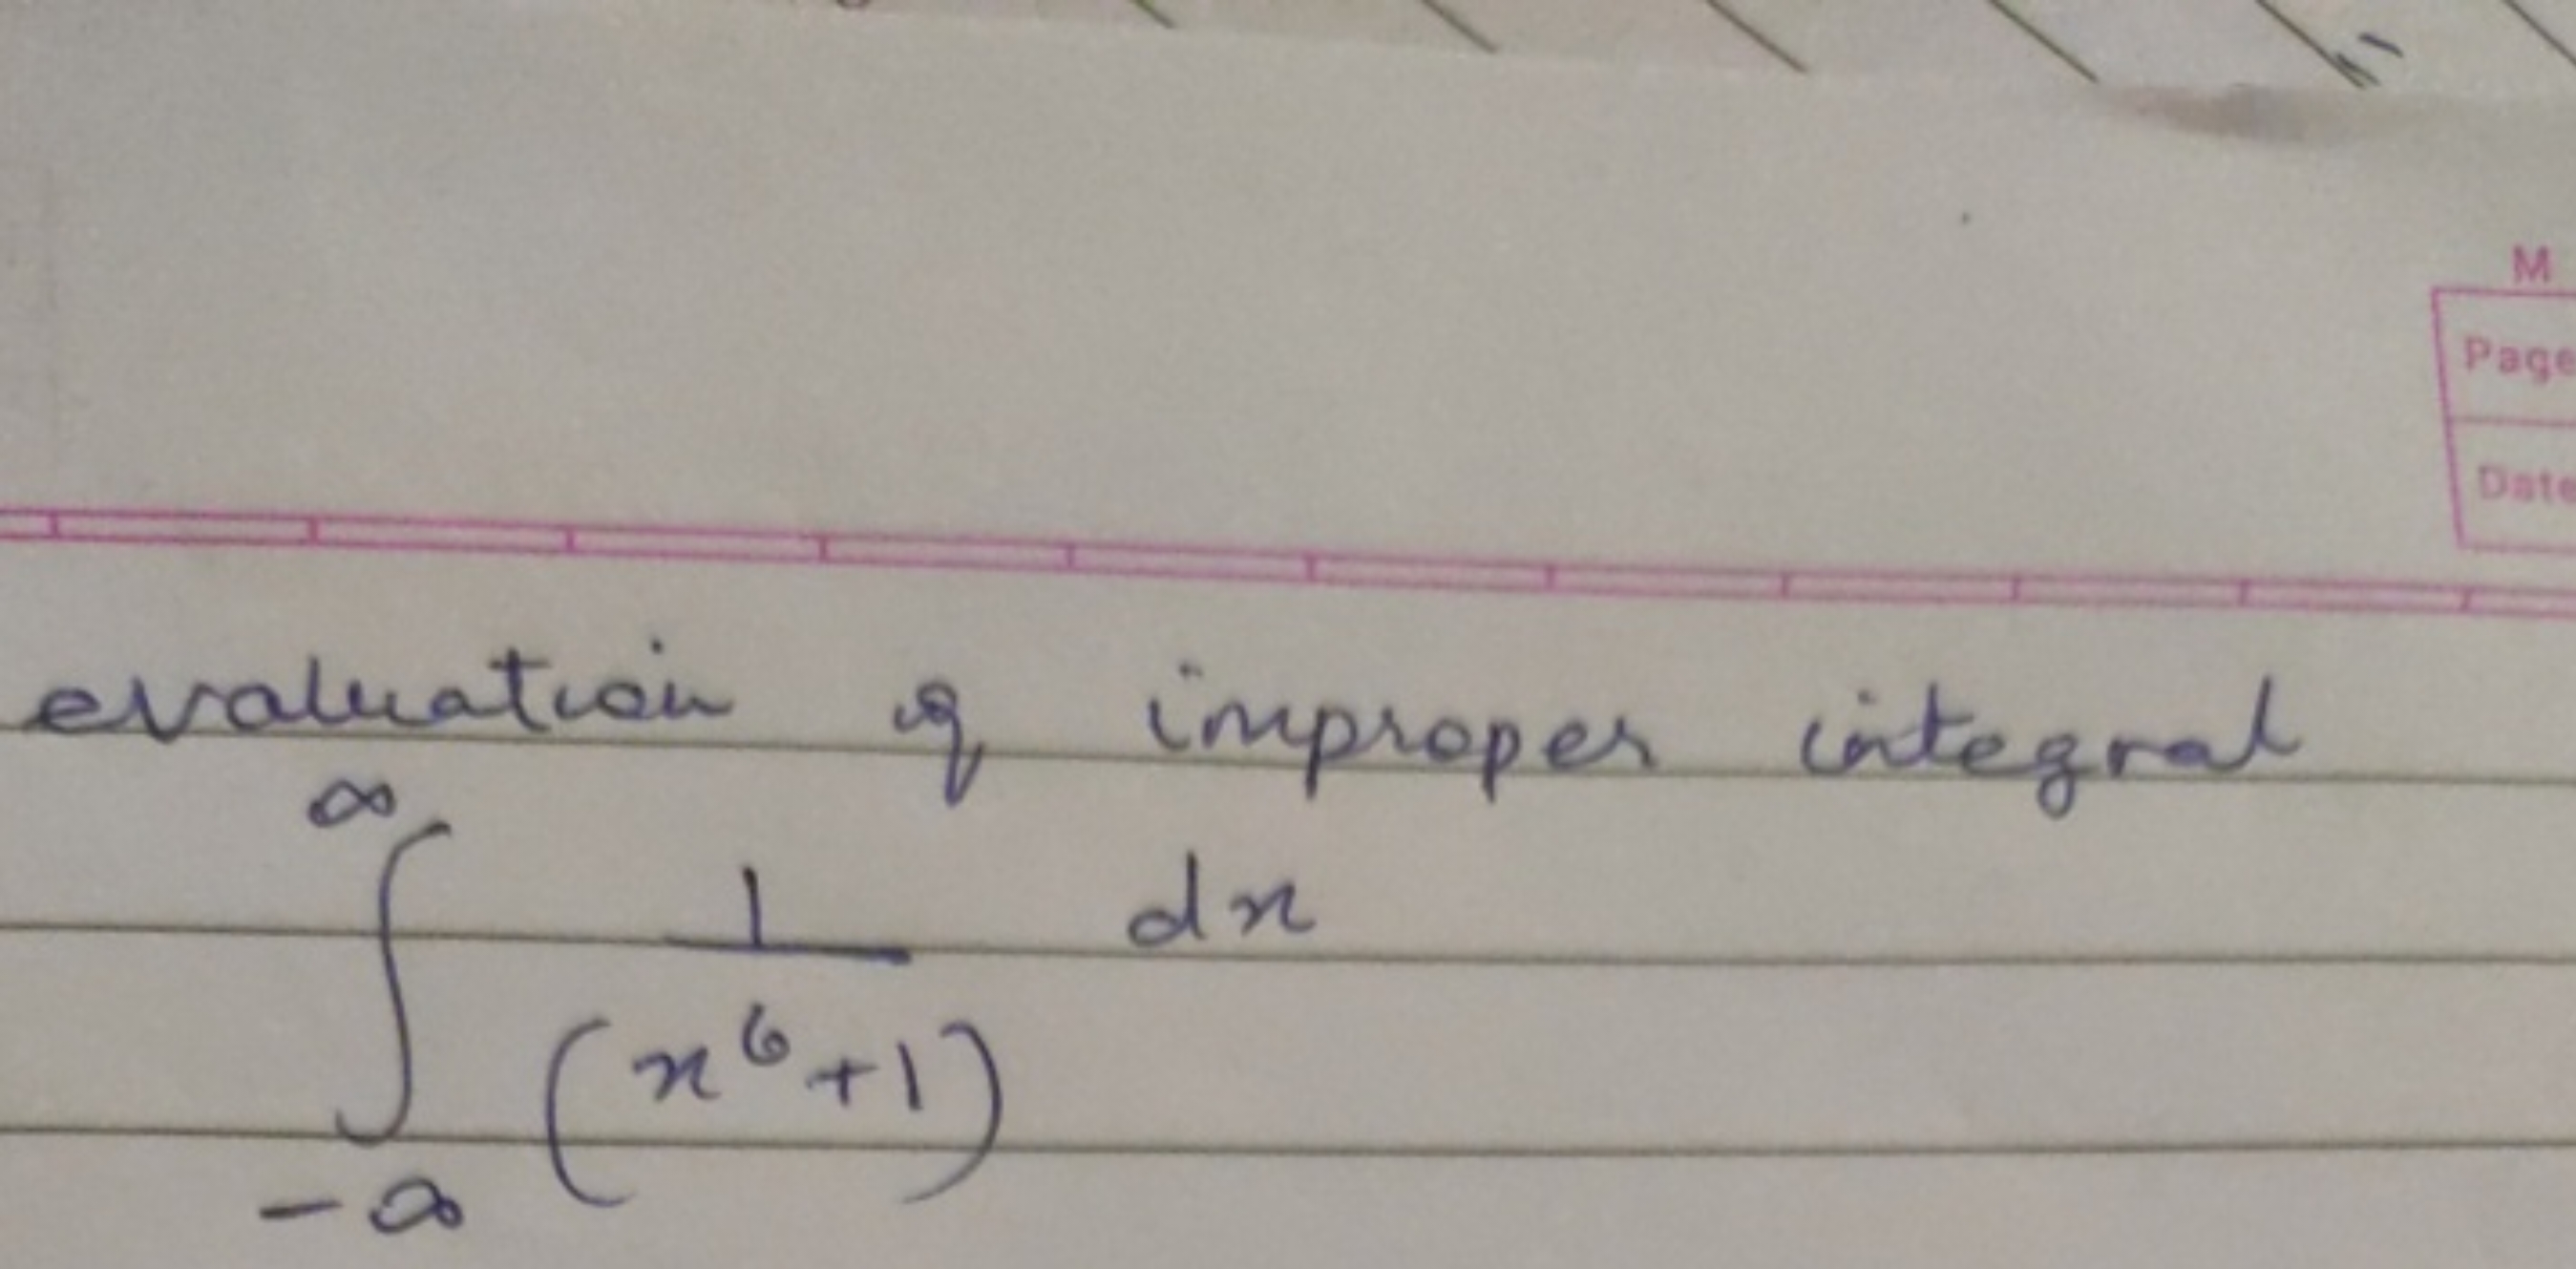 M
Page
Date
evaluation of improper integral
∞
∫ 1 dx
(x⁶+1)
-∞